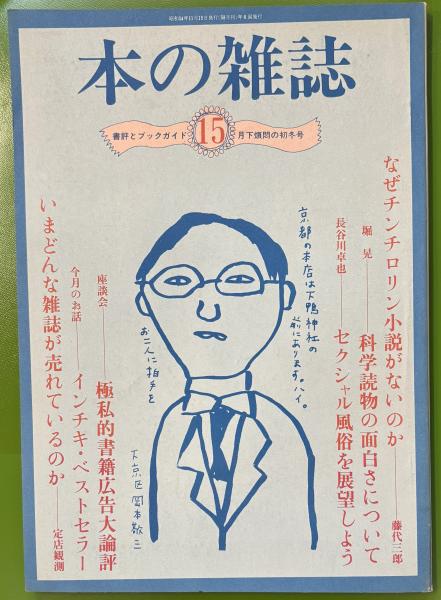 昭和54年11月10日発行(隔月刊)年6回発行
本の雑誌
書評とブックガイド
15
月下煩悶の初冬号
なぜチンチロリン小説がないのか——藤代三郎
堀晃——科学読物の面白さについて
長谷川卓也——セクシャル風俗を展望しよう
京都の本店は下鴨神社の
前にあります。ハイ。
お二人に拍手を
下京区 岡本敬三
座談会——極私的書籍広告大論評
今月のお話——インチキ・ベストセラー
いまどんな雑誌が売れているのか——定店観測